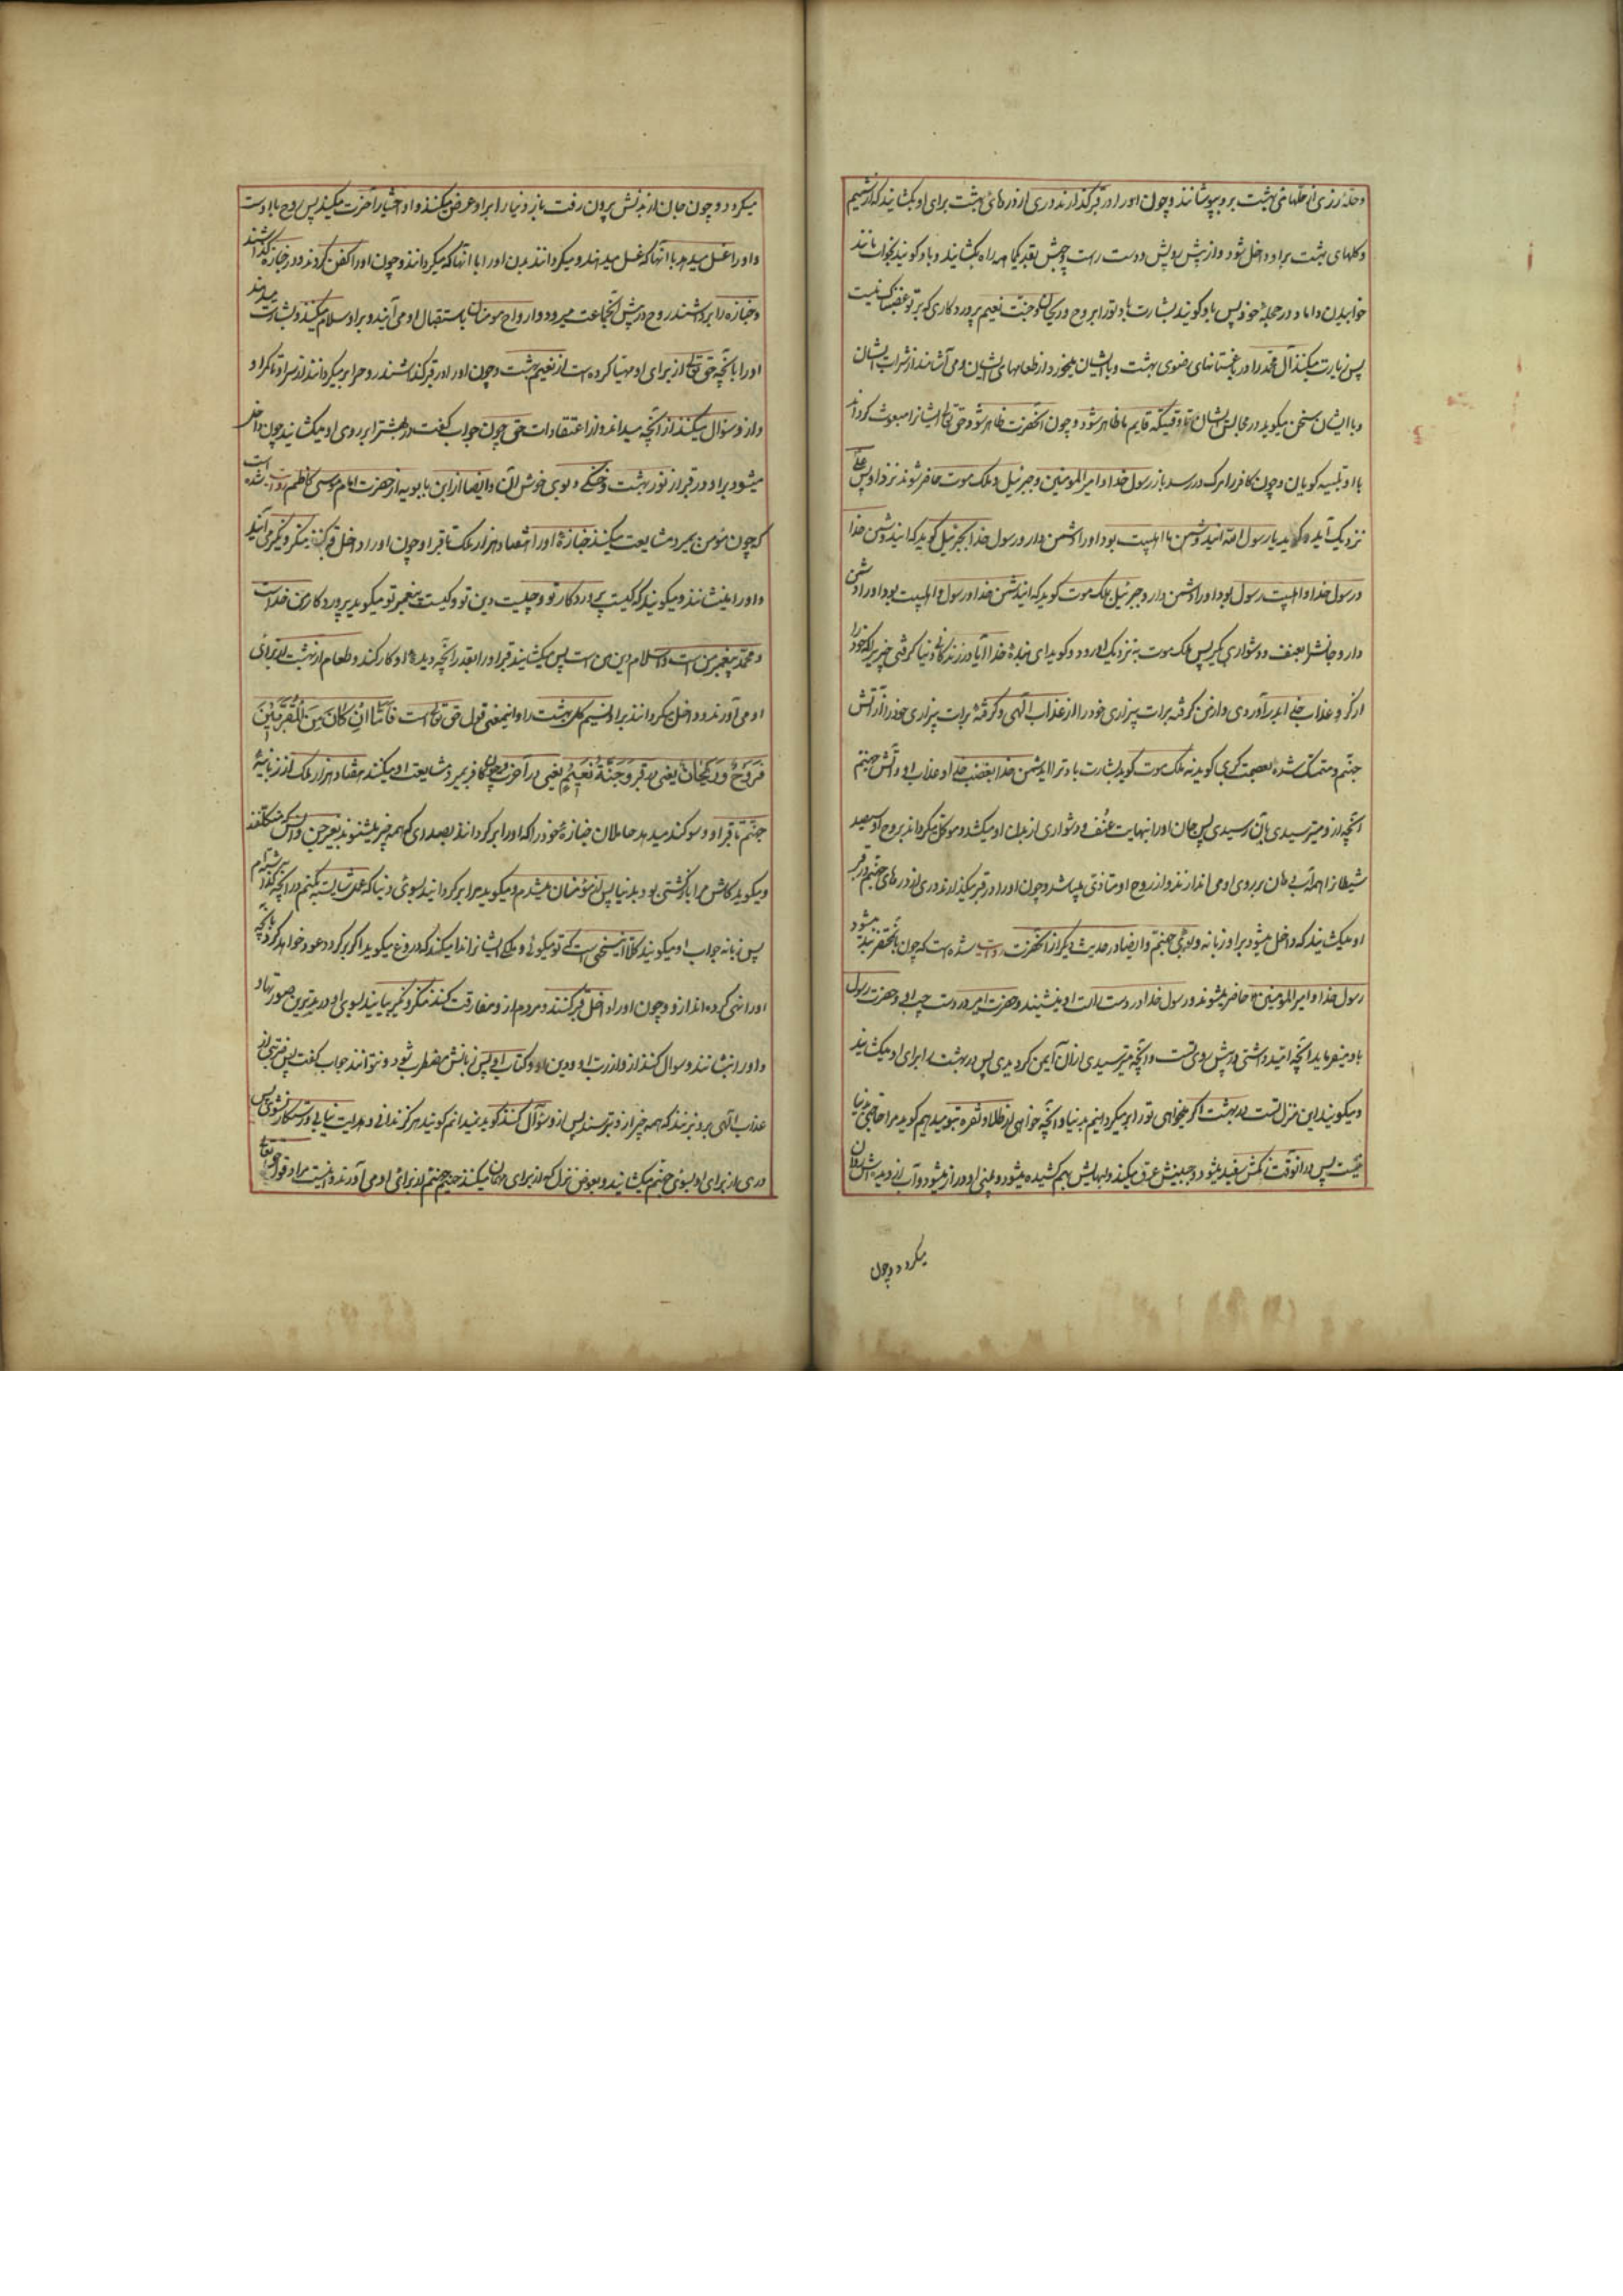 و حلهٔ زردی از حلهای بهشت برو بپوشانند و چون او را در قبر گذارند دری از درهای بهشت برای او بگشایند که از نسیم
و گلهای بهشت بر او داخل شود و از پیش رویش و دست راست و چپش بقدر یکماهه راه بگشایند و باو گویند بخواب مانند
خوابیدن داماد در حجلهٔ خود پس باو گویند بشارت باد تو را بروح و ریحان و جنت نعیم و پروردگاری که بر تو غضبناک نیست
پس زیارت میکند آل محمد را در باغستانهای رضوی بهشت و با ایشان میخورد از طعامهای ایشان و می آشامد از شراب ایشان
و با ایشان سخن میگوید در مجالس ایشان تا وقتیکه قایم ما ظاهر شود و چون آنحضرت ظاهر شود حق تعالی ایشانرا مبعوث گرداند
با او تلبیه گویان و چون کافر را مرگ در رسد باز رسول خدا و امیر المومنین و جبرئیل و ملک موت حاضر شوند نزد او پس علی
نزدیک آید و گوید یا رسول الله این دشمن ما اهلبیت بود او را دشمن دار و رسول خدا بجبرئیل گوید که این دشمن خدا
و رسول خدا و اهلبیت رسول بود او را دشمن دار و جبرئیل بملک موت گوید که این دشمن خدا و رسول و اهلبیت بود او را دشمن
دار و جانش را بعنف و دشواری بگیر پس ملک موت به نزدیک او رود و گوید ای بندهٔ خدا آیا در زندگانی دنیا گرفتی چیزیرا که خود را
از گرو عذاب خدا بدر آوردی و امان گرفتهٔ برات بیزاری خود را از عذاب الهی و گرفتهٔ برات بیزاری خود را از آتش
جهنم و متمسک شدهٔ بعصمت کبری گوید نه ملک موت گوید بشارت باد ترا ای دشمن خدا بغضب خدا و عذاب او و آتش جهنم
آنچه از و میترسیدی بآن رسیدی پس جان او را بنهایت عنف و دشواری از بدن او میکشد و موکل میگرداند بروح او سیصد
شیطانرا که همه آب دهان بر روی او می اندازند و از روح او متاذی باشد و چون او را در قبر میگذارند دری از درهای جهنم در قبر
او میگشایند که داخل میشود بر او زبانه و بوی جهنم و ایضا در حدیث دیگر از آنحضرت روایت شده است که چون محتضر میشود
رسول خدا و امیر المومنین حاضر میشوند و رسول خدا در دست راست او مینشیند و حضرت امیر در دست چپ او و حضرت رسول
باو میفرماید آنچه امید داشتی در پیش روی تست و آنچه میترسیدی از آن ایمن گردیدی پس در بهشت را برای او میگشایند
و میگویند این منزل تست در بهشت اگر میخواهی تو را بر میگردانیم بدنیا و آنچه خواهی از طلا و نقره بتو میدهیم گوید مرا حاجتی بدنیا
نیست پس در آنوقت رنگش سفید میشود و جبینش عرق میکند و لبهایش بهم کشیده میشود و بینی او دراز میشود و آب از دیده اش روان
میگردد و چون
میگردد و چون جان از بدنش برون رفت باز دنیا را بر او عرض میکنند و او اختیار آخرت میکند پس روح با اوست
و او را غسل میدهد با آنها که غسل میدهند و میگرداند بدن او را با آنها که میگردانند و چون او را کفن کردند و در جنازه گذاشتند
و جنازه را برداشتند روح در پیش آنجماعت میرود و ارواح مومنان باستقبال او می آیند و بر او سلام میکنند و بشارت میدهند
او را بآنچه حق تعالی از برای او مهیا کرده است از نعیم بهشت و چون او را در قبر گذاشتند روح را بر میگردانند از سر او تا کمر او
و از و سؤال میکنند از آنچه میداند و از اعتقادات حق چون جواب گفت در بهشت را بر روی او میگشایند چون داخل
میشود بر او در قبر از نور بهشت و خنکی و بوی خوش آن و ایضا از ابن بابویه از حضرت امام موسی کاظم روایت شده است
که چون مؤمن بمیرد مشایعت میکنند جنازهٔ او را هفتاد هزار ملک تا قبر او و چون او را داخل قبر کنند منکر و نکیر می آیند
و او را مینشانند و میگویند که کیست پروردگار تو و چیست دین تو و کیست پیغمبر تو میگوید پروردگار من خداست
و محمد پیغمبر من است و اسلام دین من است پس میگشایند قبر او را بقدر آنچه دیدهٔ او کار کند و طعام از بهشت از برای
او می آورند و داخل میگردانند بر او نسیم گل بهشت را و اینمعنی قول حق تعالی است فَاَمّا اِنْ کانَ مِنَ الْمُقَرَّبینَ
فَرَوْحٌ وَ رَیْحانٌ یعنی در قبر وَ جَنَّةُ نَعیمٍ یعنی در آخرت و چون کافر بمیرد مشایعت او میکنند هفتاد هزار ملک از زبانیهٔ
جهنم تا قبر او و سوگند میدهد حاملان جنازهٔ خود را که او را بر گردانند بصدای که همه چیز میشنوند بغیر جن و انس که مکلفند
و میگوید کاش مرا بازگشتی بود بدنیا پس از مؤمنان میشدم و میگوید مرا برگردانید بسوی دنیا که عمل شایسته بکنم در آنچه گذاشته ام
پس زبانیه جواب او میگویند کلا این سخنی است که تو میگوئی و ملکی ایشانرا ندا میکند که دروغ میگوید اگر بر گردد عود خواهد کرد بآنچه
او را نهی کرده اند از و و چون او را داخل قبر کنند و مردم از و مفارقت کنند منکر و نکیر بیایند بسوی او در بدترین صورتها
و او را بنشانند و سوال کنند از و از رب او و دین او و کتاب او پس زبانش مضطرب شود و نتواند جواب گفت پس ضربتی از
عذاب الهی برو بزنند که همه چیز از و بترسند پس از و سؤال کنند گوید نمیدانم گویند هرگز ندانی و هدایت نیابی و رستگار نشوی پس
دری از برای او بسوی جهنم میگشایند و بعوض نزل که از برای مهمان میکنند حمیم جهنم از برای او می آورند و اینست مراد قول حق تعالی